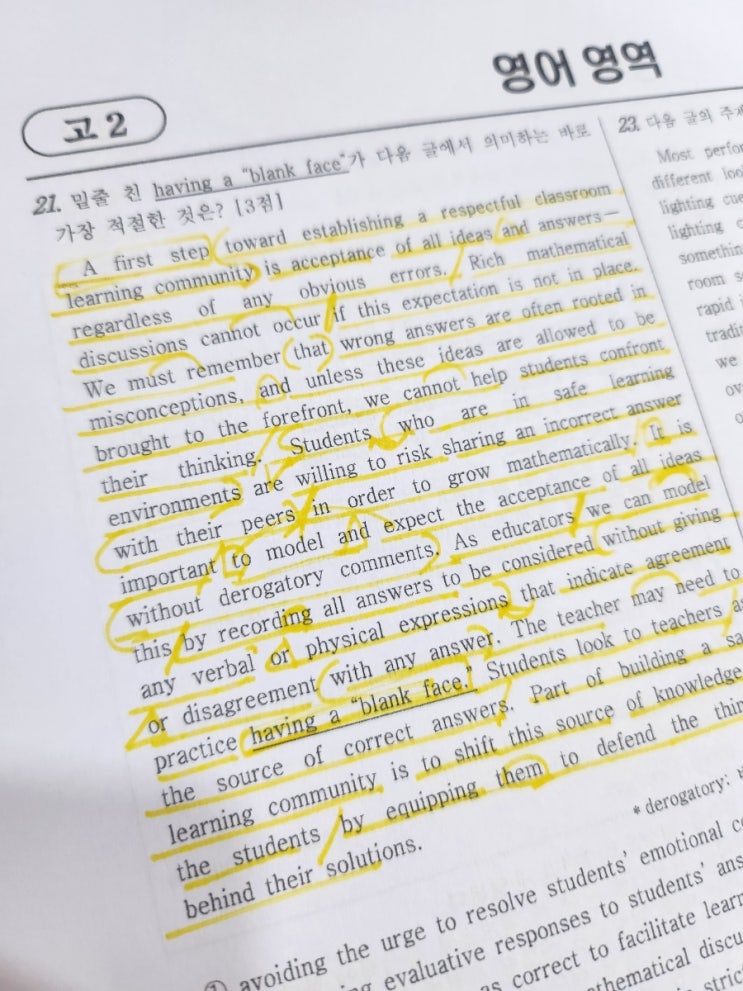 영어 영역
고 2
21. 밑줄 친 having a “blank face”가 다음 글에서 의미하는 바로
가장 적절한 것은? [3점]
A first step toward establishing a respectful classroom
learning community is acceptance of all ideas and answers—
regardless of any obvious errors. Rich mathematical
discussions cannot occur if this expectation is not in place.
We must remember that wrong answers are often rooted in
misconceptions, and unless these ideas are allowed to be
brought to the forefront, we cannot help students confront
their thinking. Students who are in safe learning
environments are willing to risk sharing an incorrect answer
with their peers in order to grow mathematically. It is
important to model and expect the acceptance of all ideas
without derogatory comments. As educators we can model
this by recording all answers to be considered without giving
any verbal or physical expressions that indicate agreement
or disagreement with any answer. The teacher may need to
practice having a “blank face.” Students look to teachers as
the source of correct answers. Part of building a
learning community is to shift this source of knowledge
the students by equipping them to defend the
behind their solutions.
* derogatory:
① avoiding the urge to resolve students’ emotional
evaluative responses to students’
as correct to facilitate
23. 다음 글의
Most
different
lighting
lighting
something
room
rapid
we